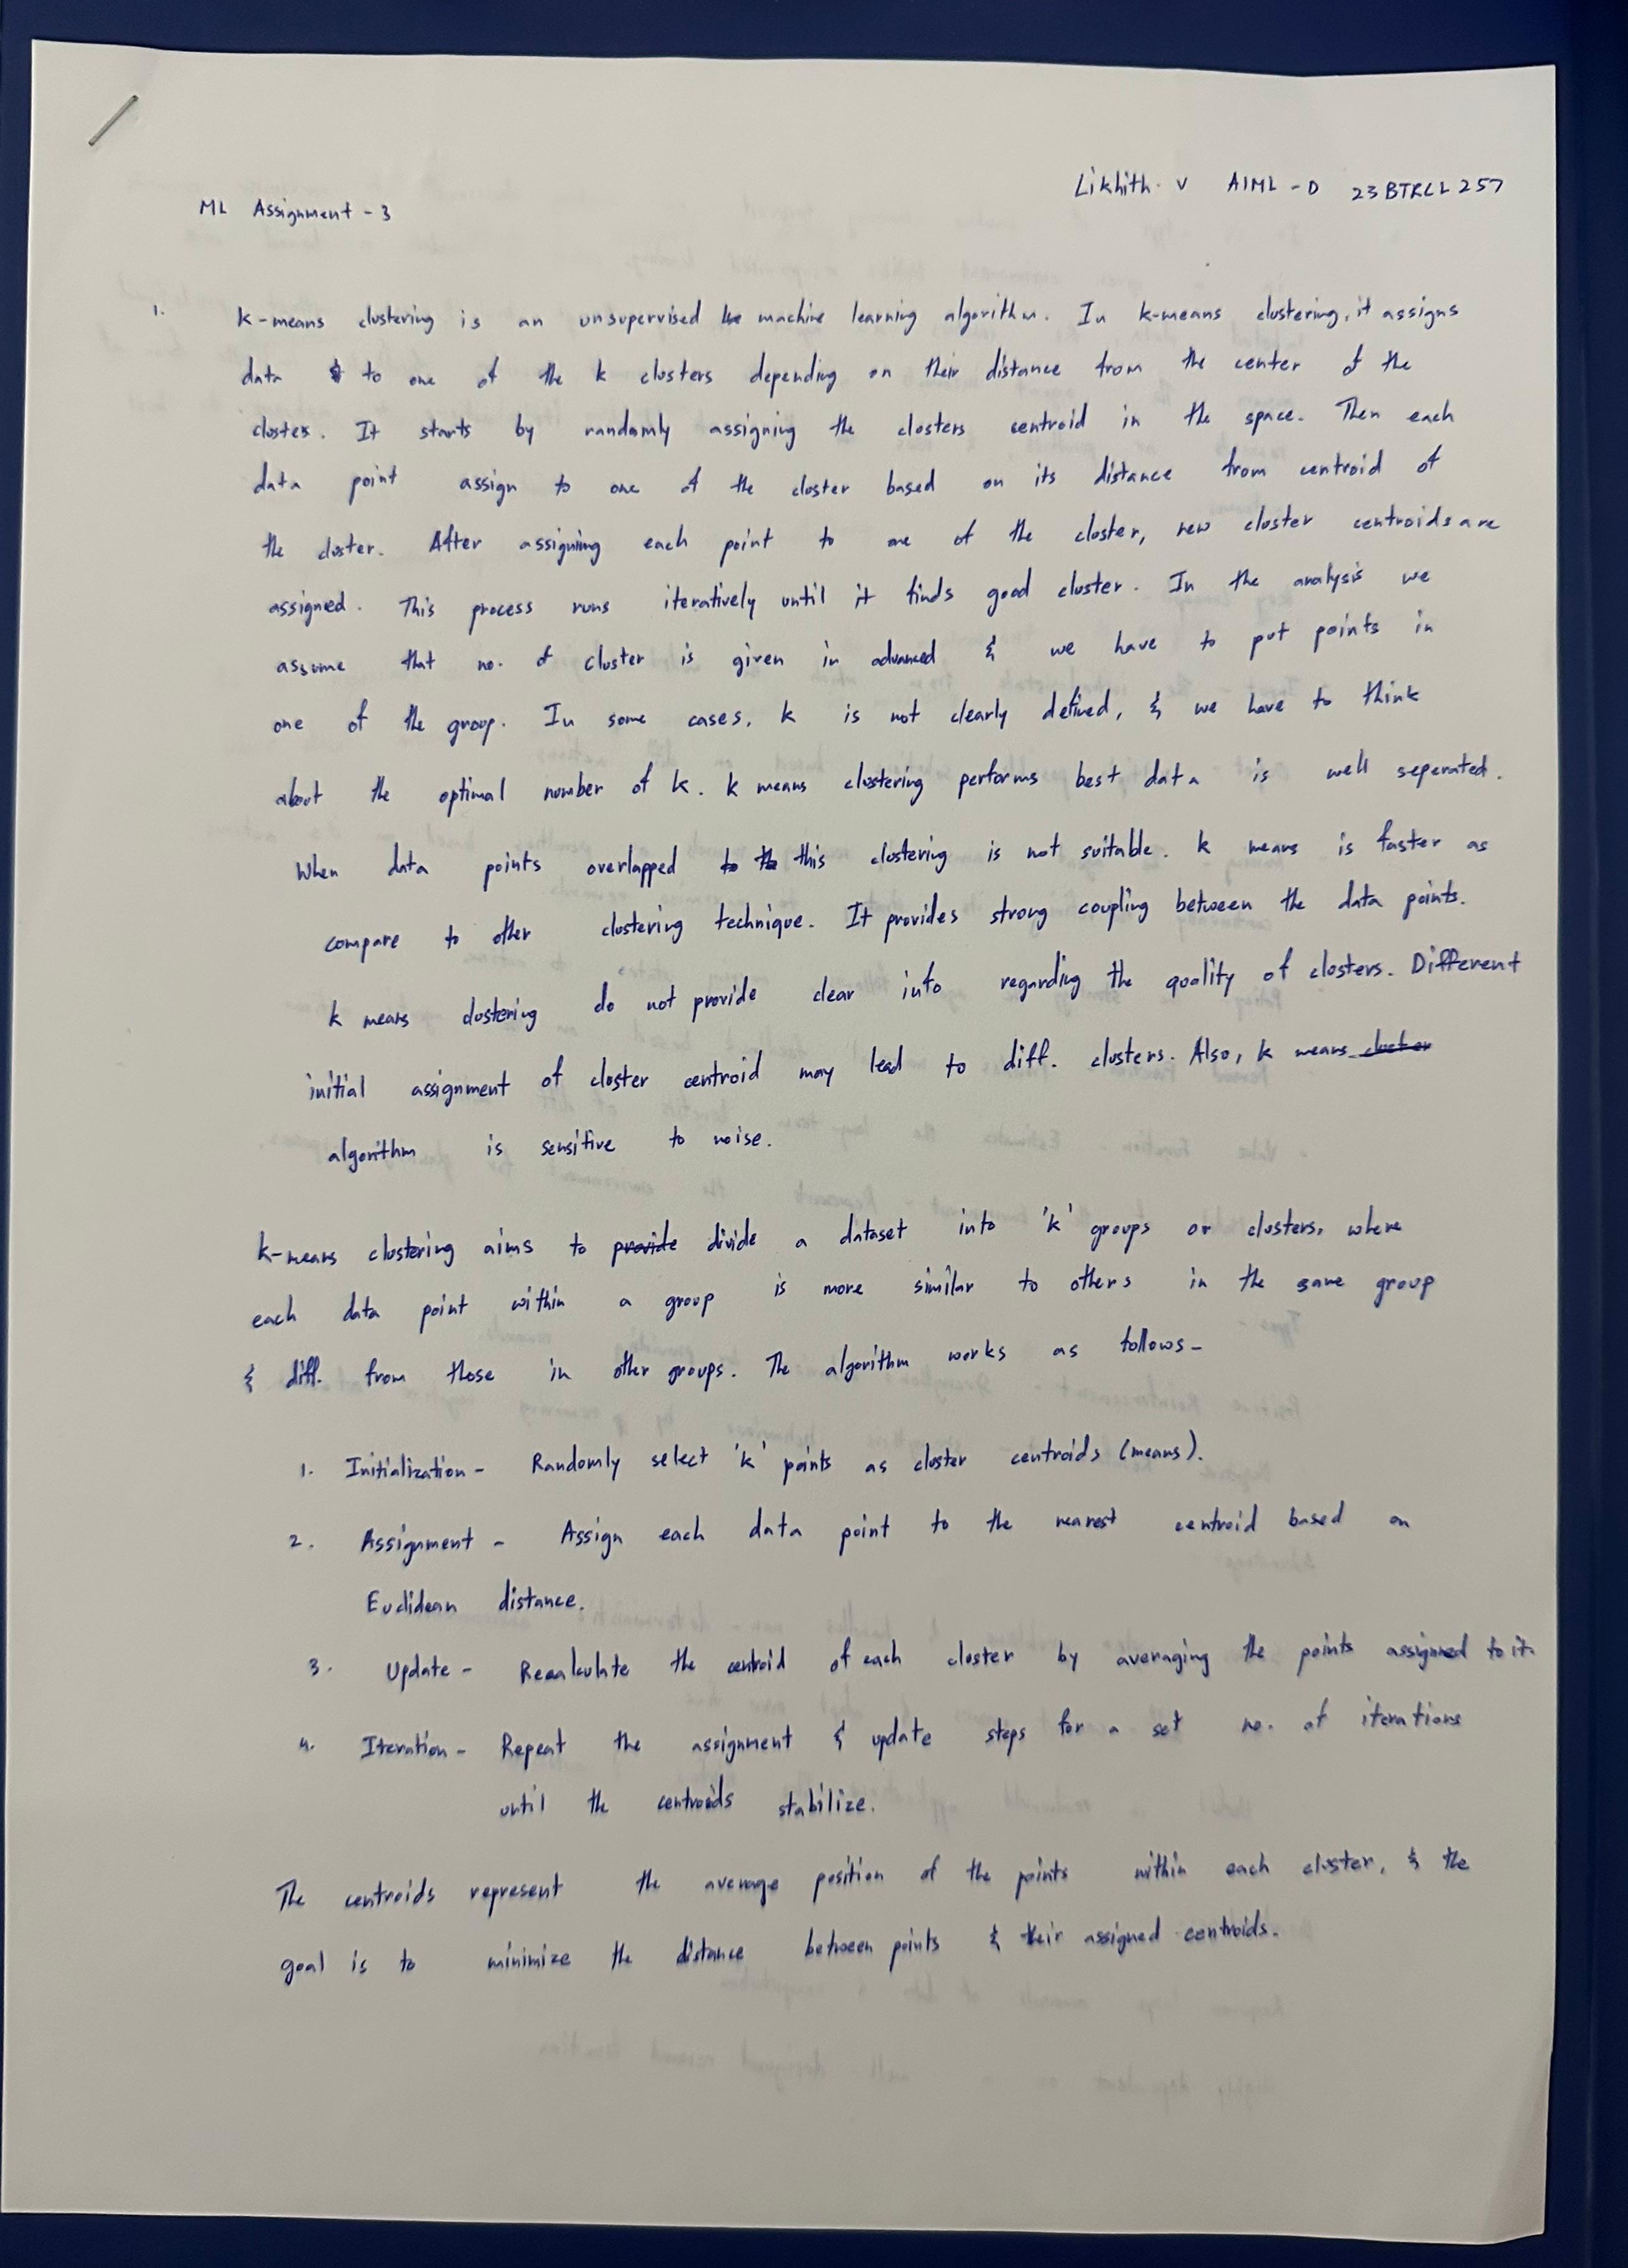 Likhith. V AIML - D 23BTRCL257
ML Assignment - 3
1. K-means clustering is an unsupervised machine learning algorithm. In k-means clustering, it assigns
data to one of the k clusters depending on their distance from the center of the
cluster. It starts by randomly assigning the clusters centroid in the space. Then each
data point assign to one of the cluster based on its distance from centroid of
the cluster. After assigning each point to one of the cluster, new cluster centroids are
assigned. This process runs iteratively until it finds good cluster. In the analysis we
assume that no. of cluster is given in advanced & we have to put points in
one of the group. In some cases, k is not clearly defined, & we have to think
about the optimal number of k. k means clustering performs best data is well seperated.
When data points overlapped this clustering is not suitable. k means is faster as
compare to other clustering technique. It provides strong coupling between the data points.
k means clustering do not provide clear info regarding the quality of clusters. Different
initial assignment of cluster centroid may lead to diff. clusters. Also, k means cluster
algorithm is sensitive to noise.
k-means clustering aims to provide divide a dataset into 'k' groups or clusters, where
each data point within a group is more similar to others in the same group
& diff. from those in other groups. The algorithm works as follows-
1. Initialization - Randomly select 'k' points as cluster centroids (means).
2. Assignment - Assign each data point to the nearest centroid based on
Euclidean distance.
3. Update - Recalculate the centroid of each cluster by averaging the points assigned to it.
4. Iteration - Repeat the assignment & update steps for a set no. of iterations
until the centroids stabilize.
The centroids represent the average position of the points within each cluster, & the
goal is to minimize the distance between points & their assigned centroids.